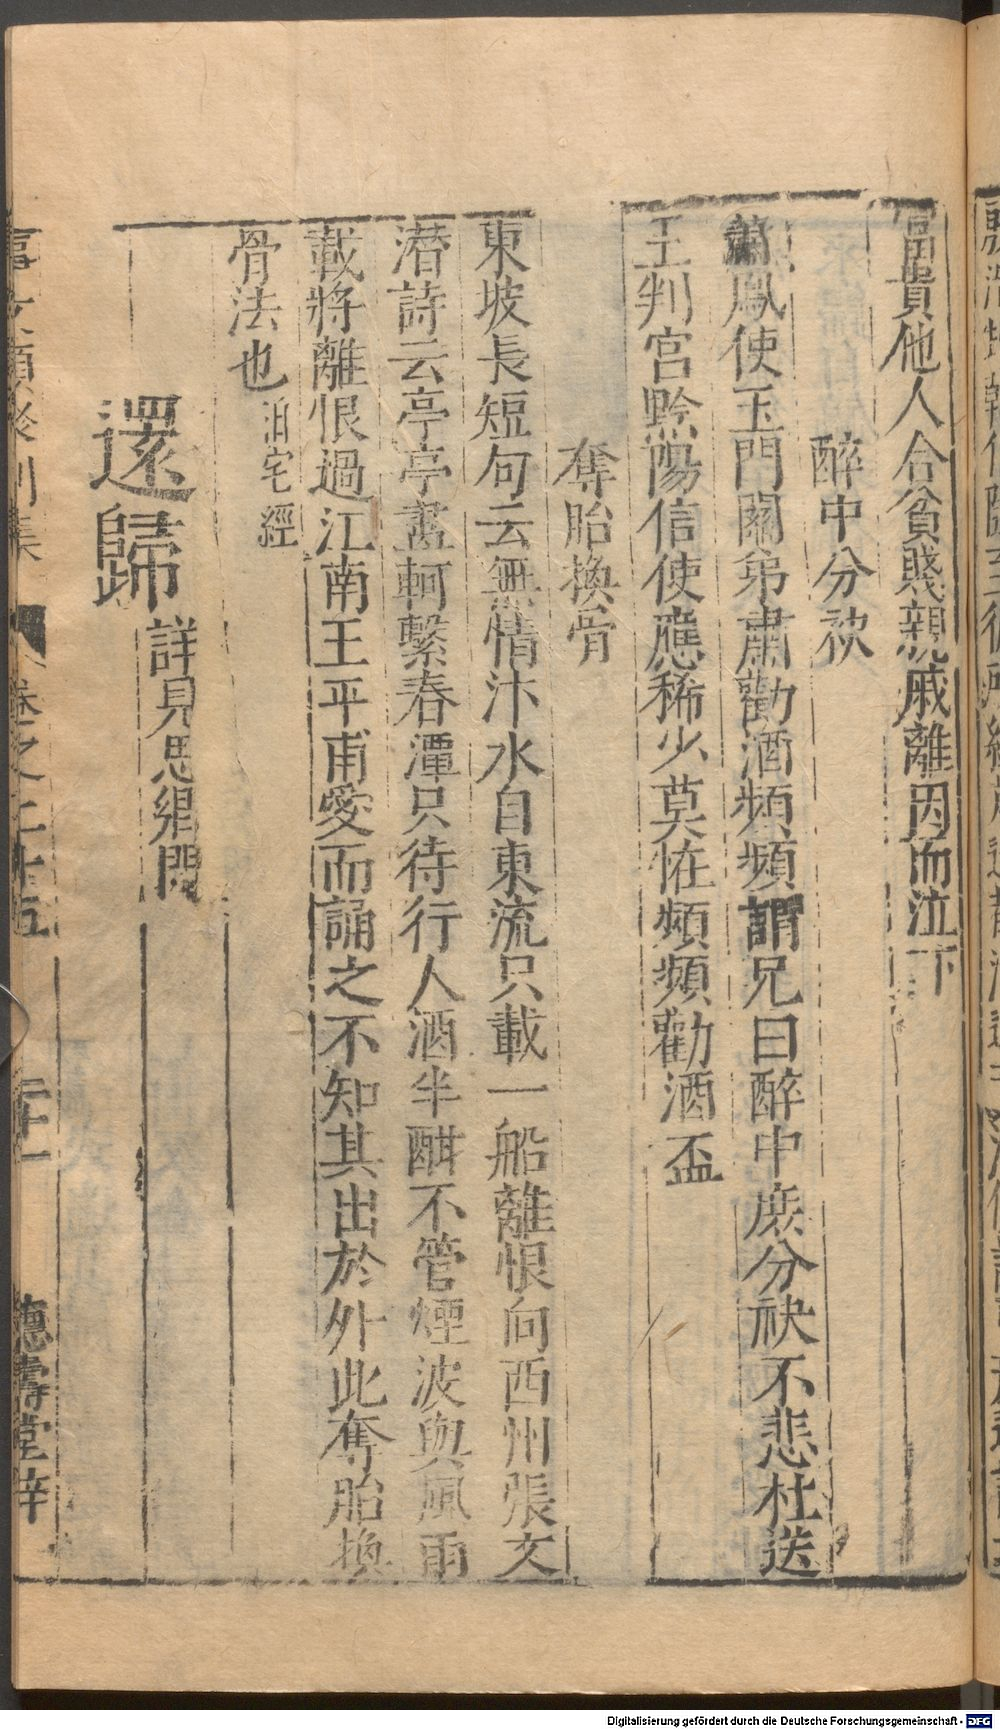 富貴他人合貧賤親戚離因而泣下
醉中分袂
蕭鳳使玉門關弟肅勸酒頻頻謂兄曰醉中庶分袂不悲杜送
王判官黔陽信使應稀少莫怪頻頻勸酒盃
奪胎換骨
東坡長短句云無情汴水自東流只載一船離恨向西州張文
潜詩云亭亭畫軻繫春潭只待行人酒半酣不管煙波與風雨
載將離恨過江南王平甫愛而誦之不知其出於外此奪胎換
骨法也 泊宅經
還歸 詳見思鄉門
事文類聚別集 卷之二十五 二十一 德壽堂梓
Digitalisierung gefördert durch die Deutsche Forschungsgemeinschaft - DFG